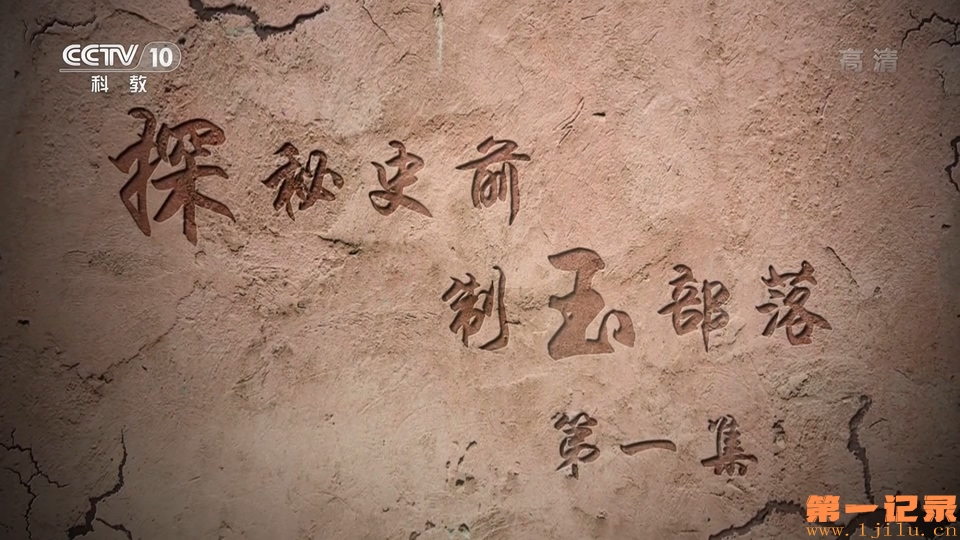 CCTV 10
科教
高清
探秘史前
制玉部落
第一集
第一记录
www.1jilu.cn